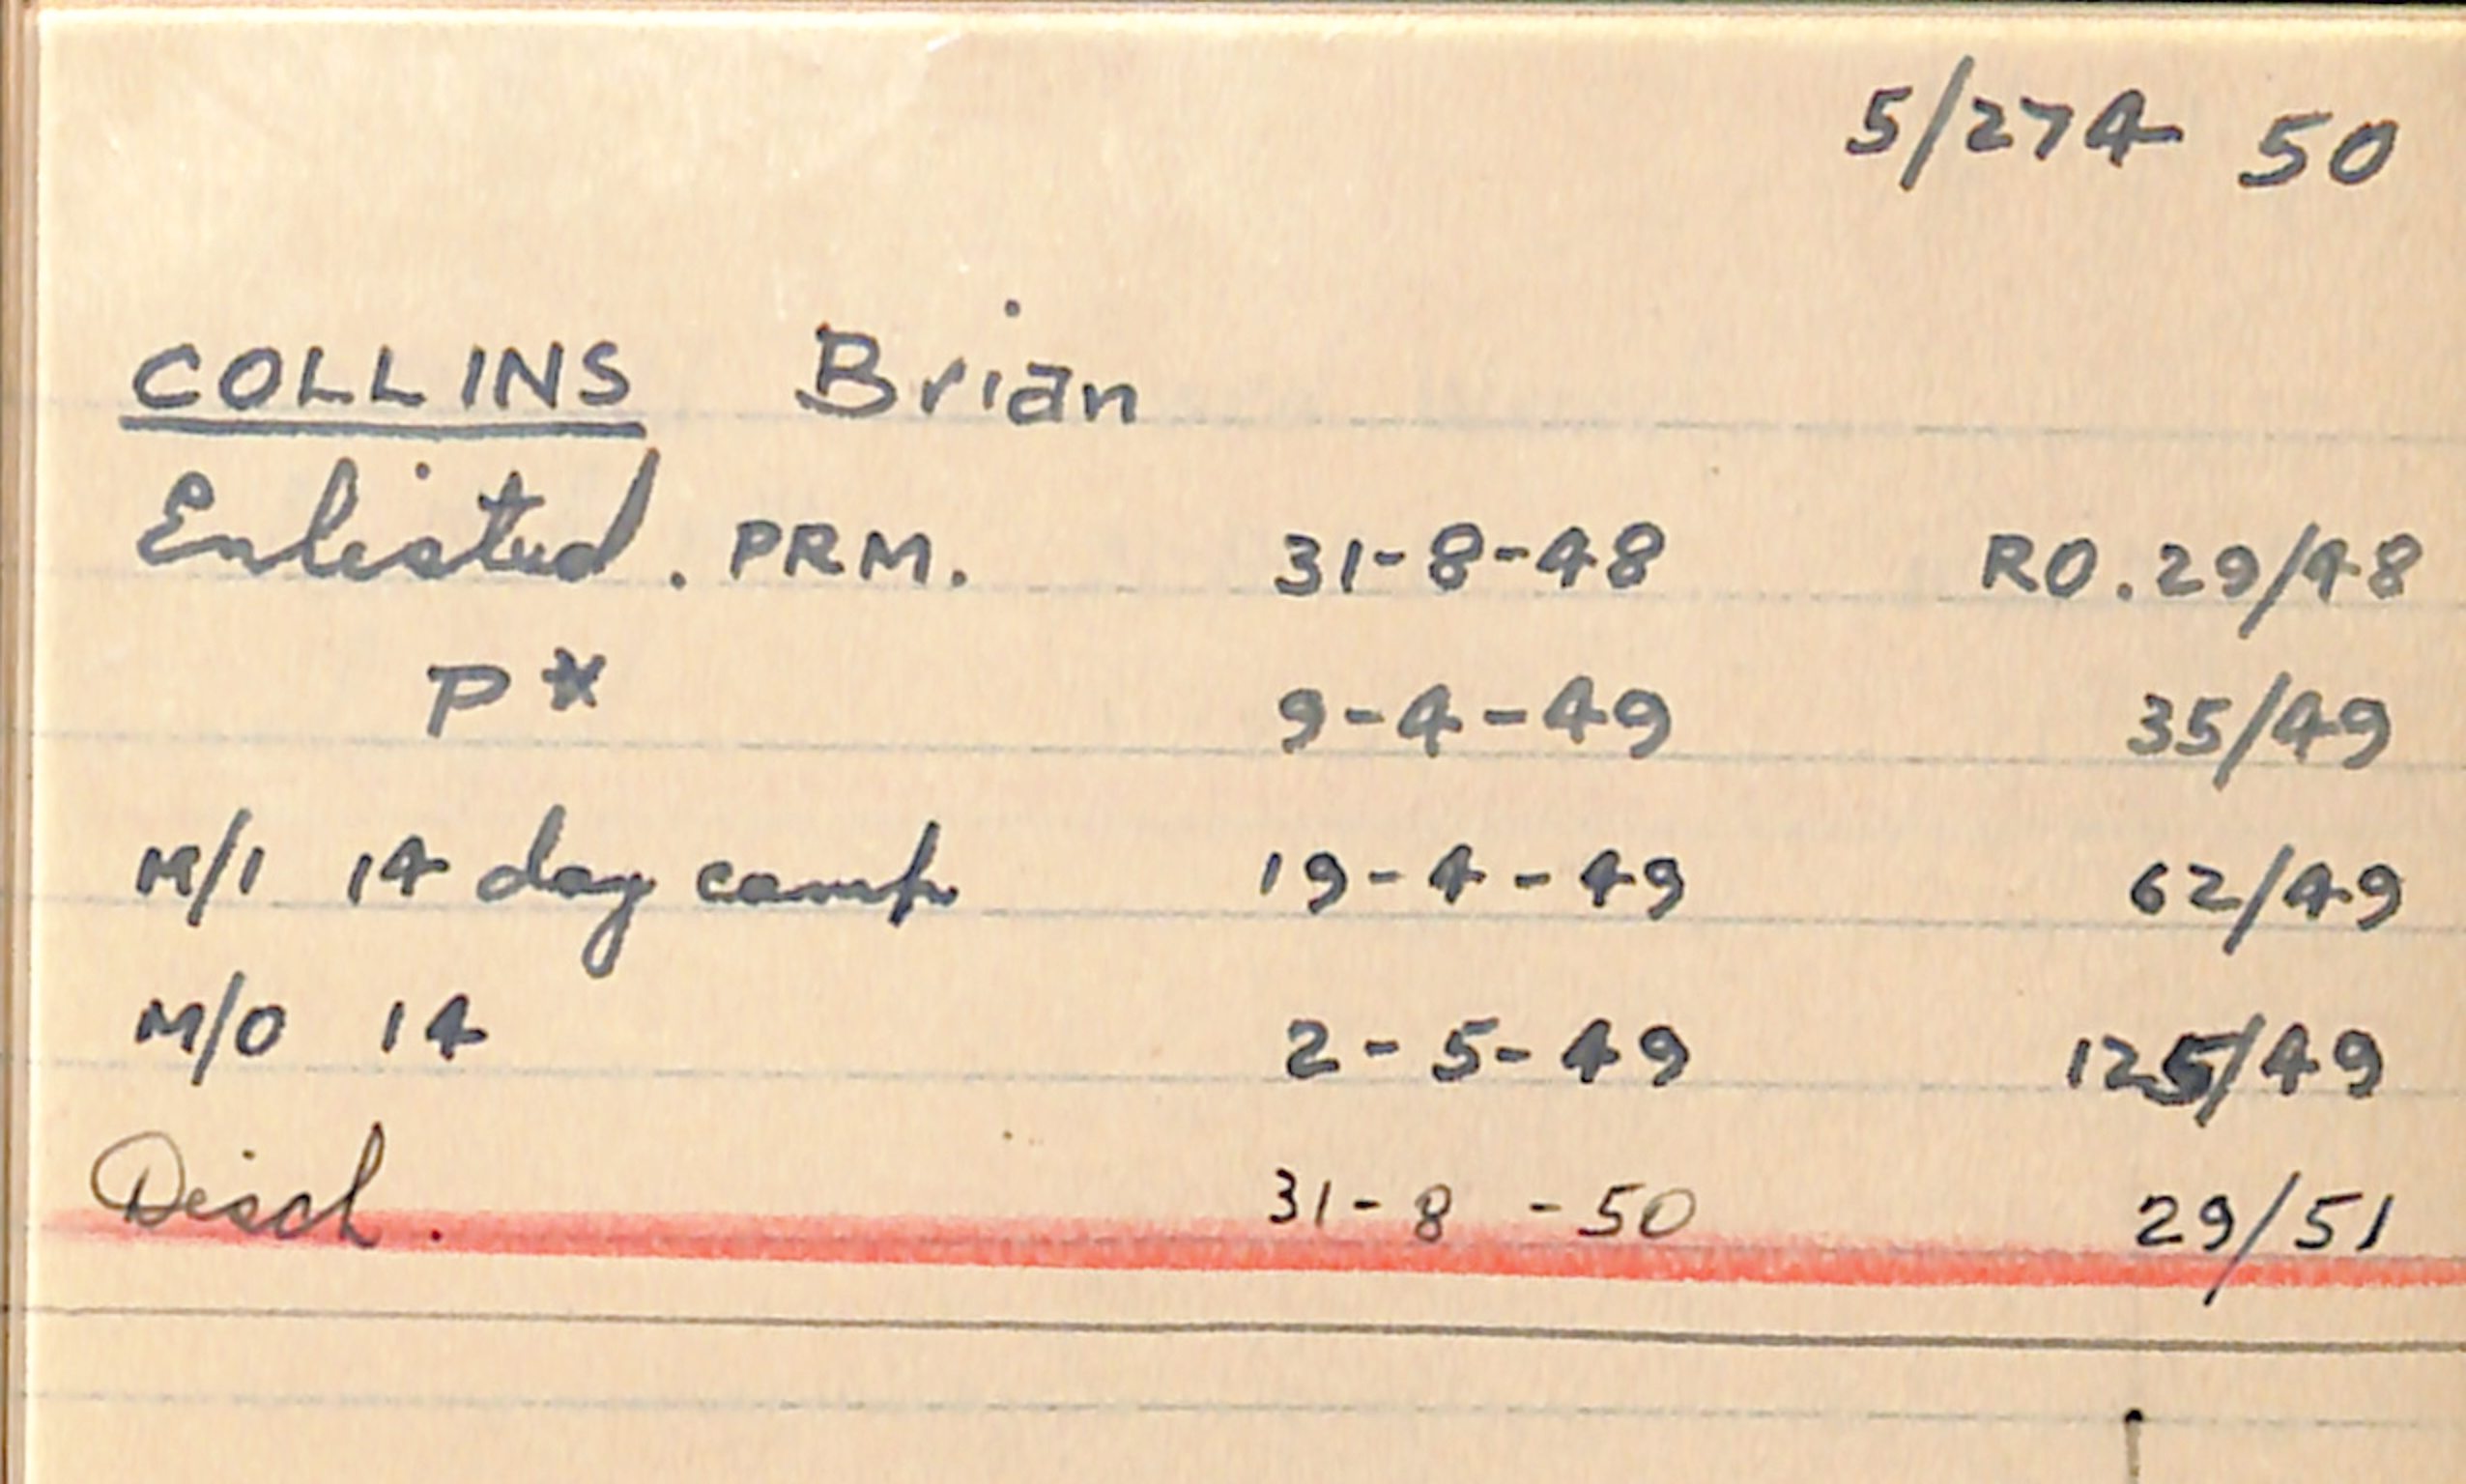 5/274 50
COLLINS Brian
Enlisted. PRM. 31-8-48 RO.29/48
P* 9-4-49 35/49
M/1 14 day camp 19-4-49 62/49
M/O 14 2-5-49 125/49
Disch. 31-8-50 29/51